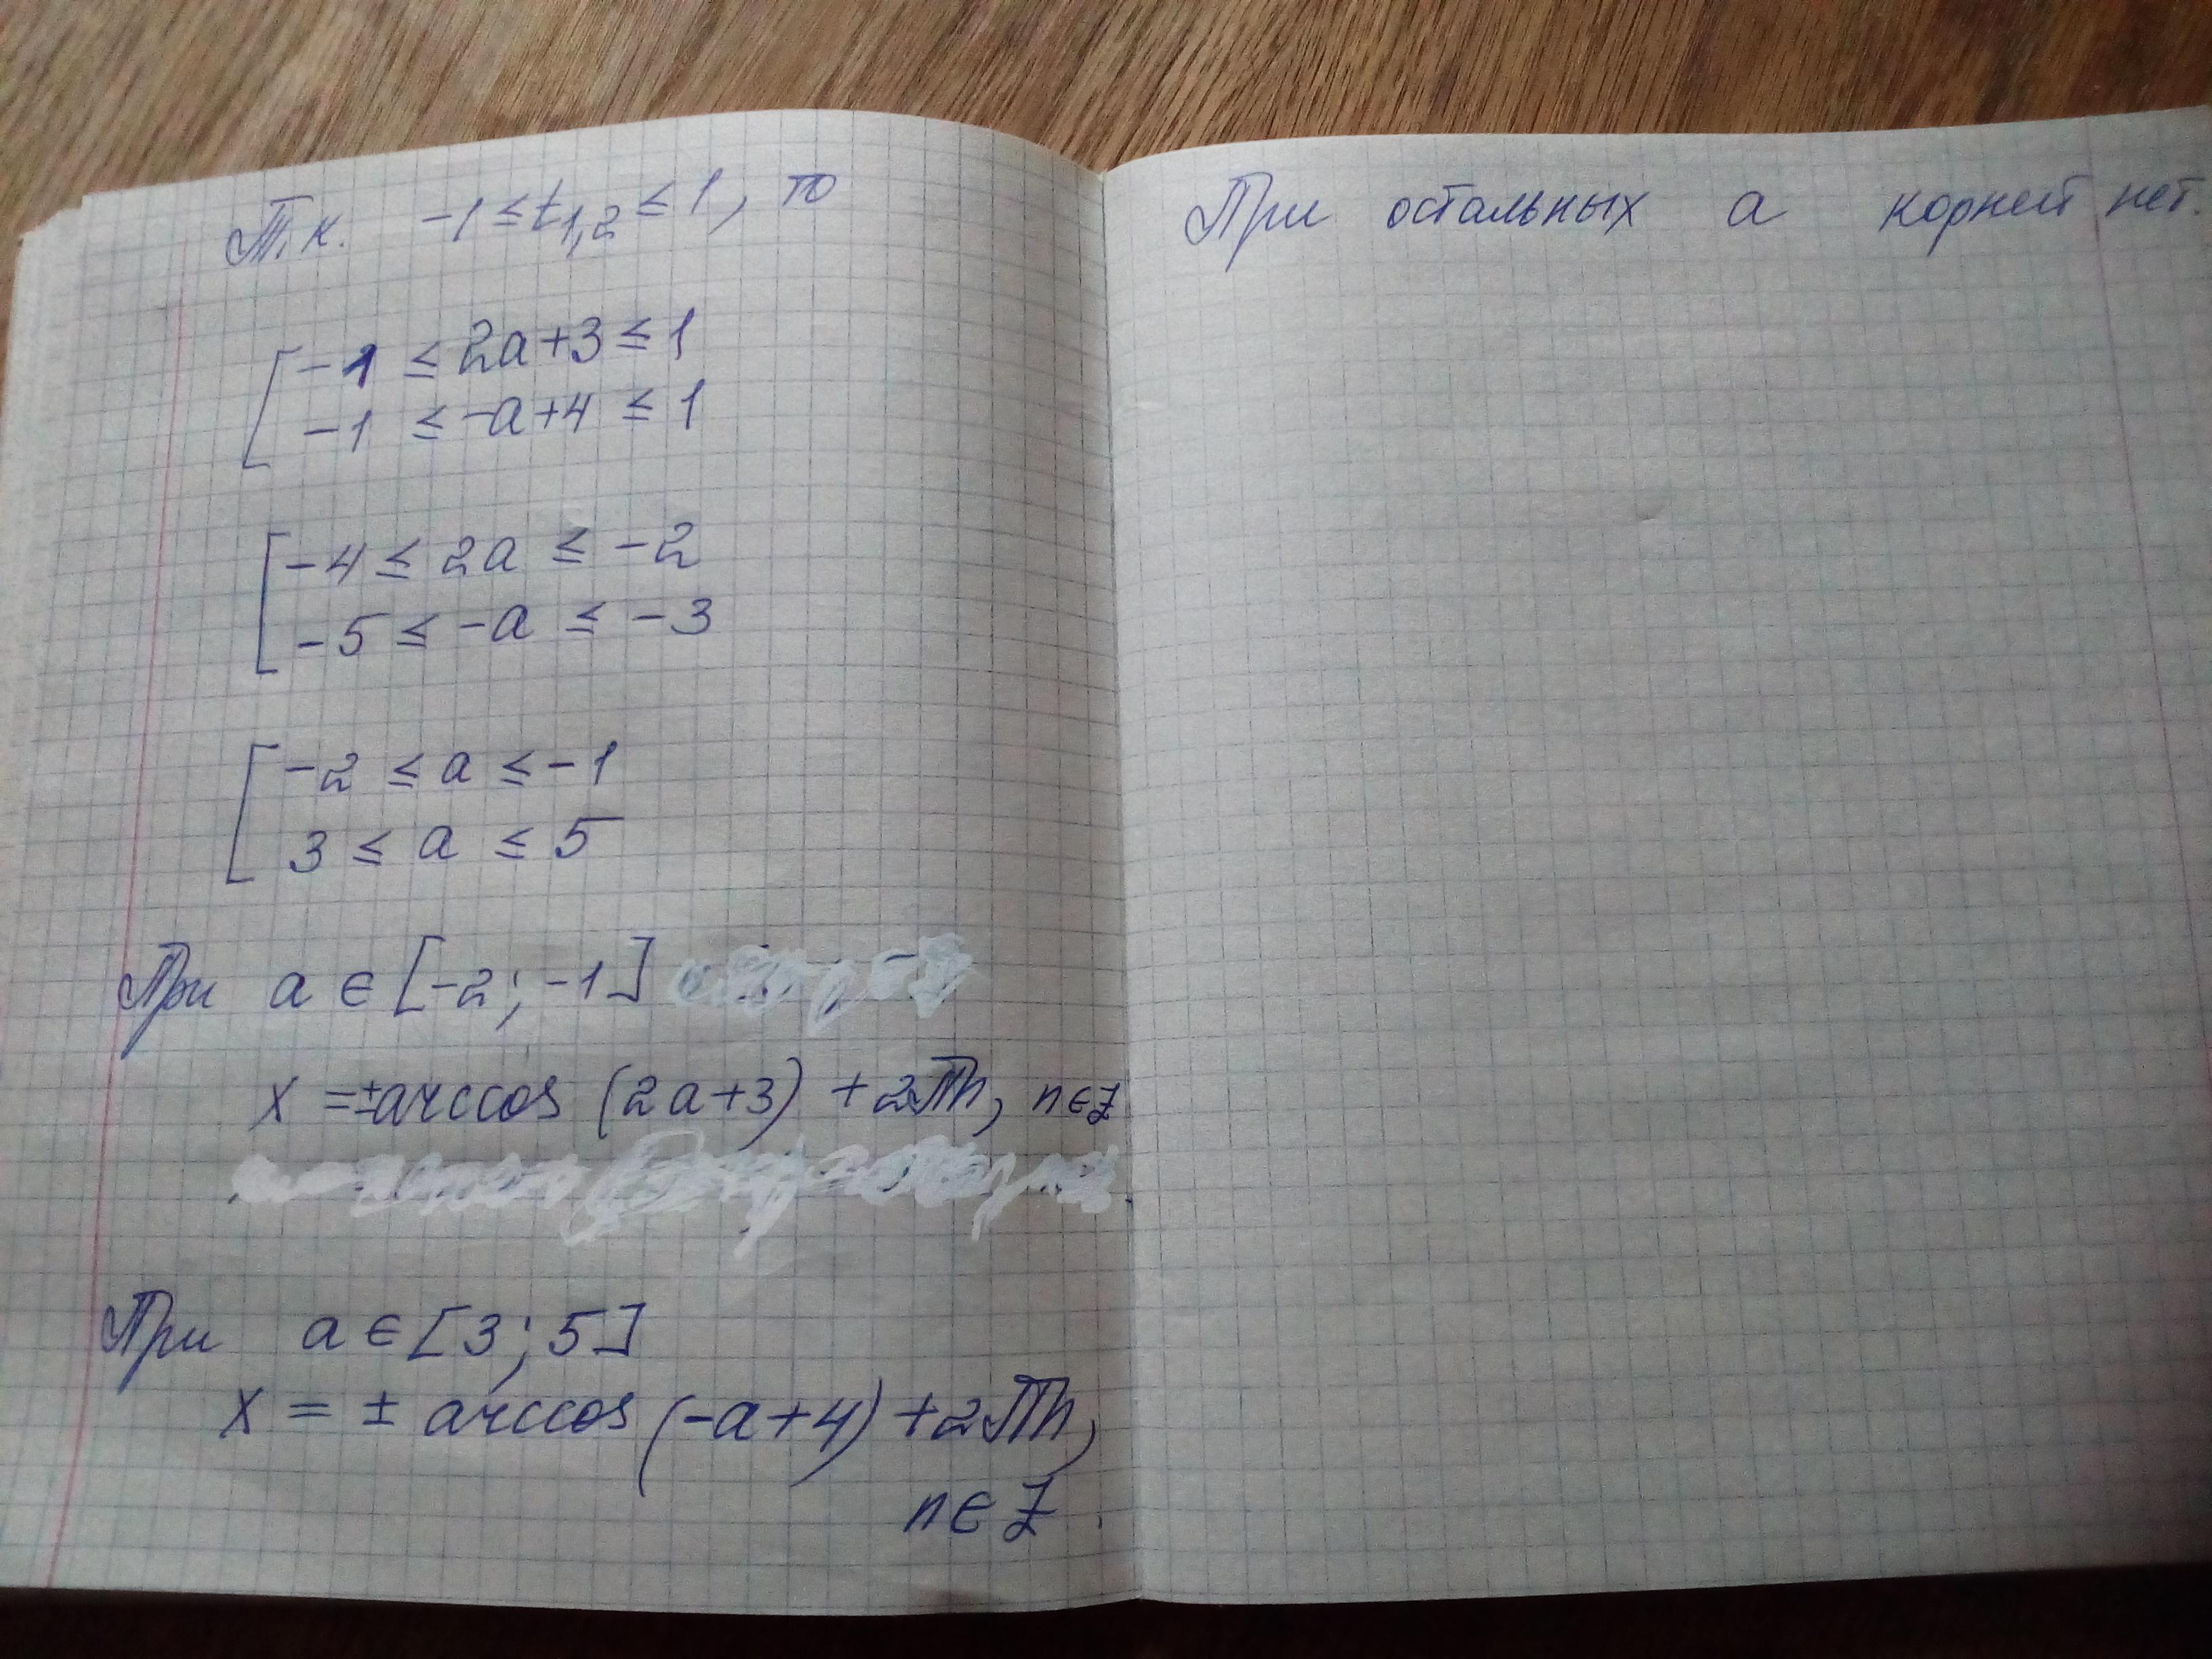 Т.к. -1 ≤ t1,2 ≤ 1, то
[ -1 ≤ 2a+3 ≤ 1
-1 ≤ -a+4 ≤ 1
[ -4 ≤ 2a ≤ -2
-5 ≤ -a ≤ -3
[ -2 ≤ a ≤ -1
3 ≤ a ≤ 5
При a ∈ [-2; -1]
x = ± arccos (2a+3) + 2πn, n ∈ Z
При a ∈ [3; 5]
x = ± arccos (-a+4) + 2πn,
n ∈ Z
При остальных a корней нет.